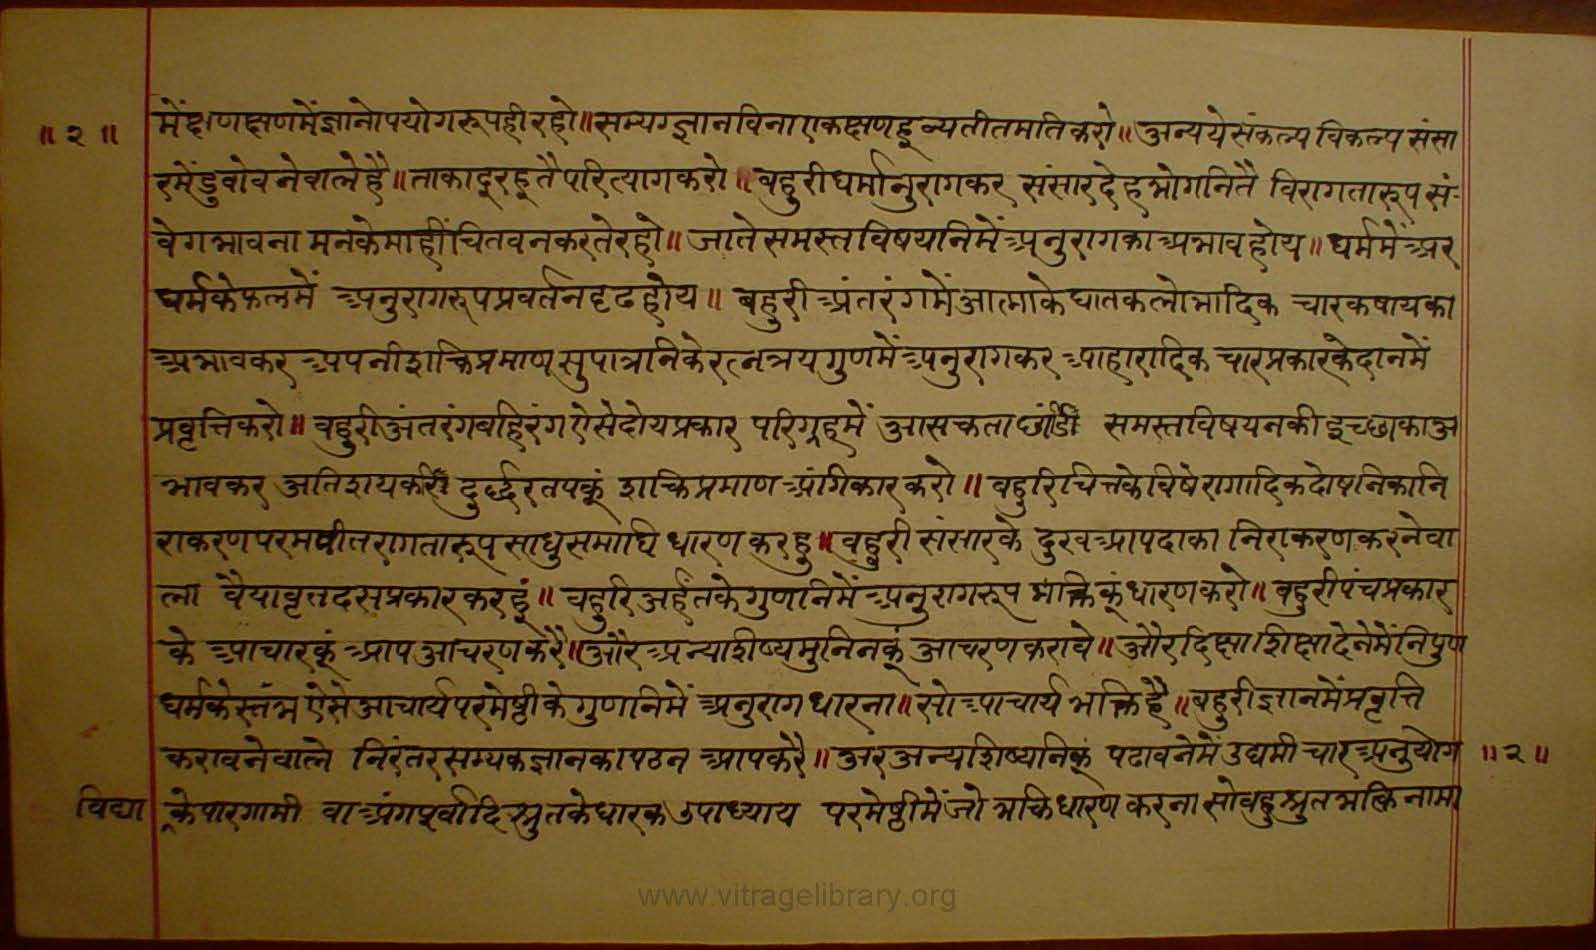 ॥ २ ॥ में क्षण क्षण में ज्ञानोपयोगरूपही रहो ॥ सम्यग्ज्ञान विना एक क्षण हू व्यतीत मति करो ॥ अन्य ये संकल्प विकल्प संसा
र में डुबोवनेवाले है ॥ ताका दूरहूतै परित्याग करो ॥ बहुरी धर्मानुराग कर संसार देह भोगनितै विरागतारूप सं-
वेगभावना मनके माहीं चितवन करते रहो ॥ जाते समस्त विषयनिमें अनुरागका अभाव होय ॥ धर्ममें अर
धर्मके फलमें अनुरागरूप प्रवर्तन दृढ होय ॥ बहुरी अंतरंगमें आत्माके घातक लोभादिक चार कषायका
अभाव कर अपनी शक्तिप्रमाण सुपात्रनिके रत्नत्रय गुणमें अनुराग कर आहारादिक चार प्रकारके दानमें
प्रवृत्ति करो ॥ बहुरी अंतरंग बहिरंग ऐसे दोय प्रकार परिग्रहमें आसक्तता छांडी समस्त विषयनकी इच्छाका अ
भाव कर अतिशय करी दुर्द्धर तपकूं शक्तिप्रमाण अंगिकार करो ॥ बहुरि चित्तके विषे रागादिक दोषनिका नि
राकरण परम वीतरागतारूप साधुसमाधि धारण करहु ॥ बहुरी संसारके दुख आपदाका निराकरण करनेवा
ला वैयावृत दस प्रकार करहूं ॥ बहुरि अर्हंतके गुणनिमें अनुरागरूप भक्तिकूं धारण करो ॥ बहुरी पंच प्रकार
के आचारकूं आप आचरण करै ॥ और अन्य शिष्य मुनिनकूं आचरण करावे ॥ और दिक्षा शिक्षा देनेमें निपुण
धर्मके स्तंभ ऐसे आचार्य परमेष्ठीके गुणनिमें अनुराग धारना ॥ सो आचार्य भक्ति है ॥ बहुरी ज्ञानमें प्रवृत्ति
करावनेवाले निरंतर सम्यकज्ञानका पठन आप करै ॥ अर अन्य शिष्यनिकूं पढावनेमें उद्यमी चार अनुयोग ॥ २ ॥
विद्या के पारगामी वा अंगपूर्वादि स्रुतके धारक उपाध्याय परमेष्ठीमें जो भक्ति धारण करना सो बहुश्रुतभक्ति नामा
www.vitragelibrary.org